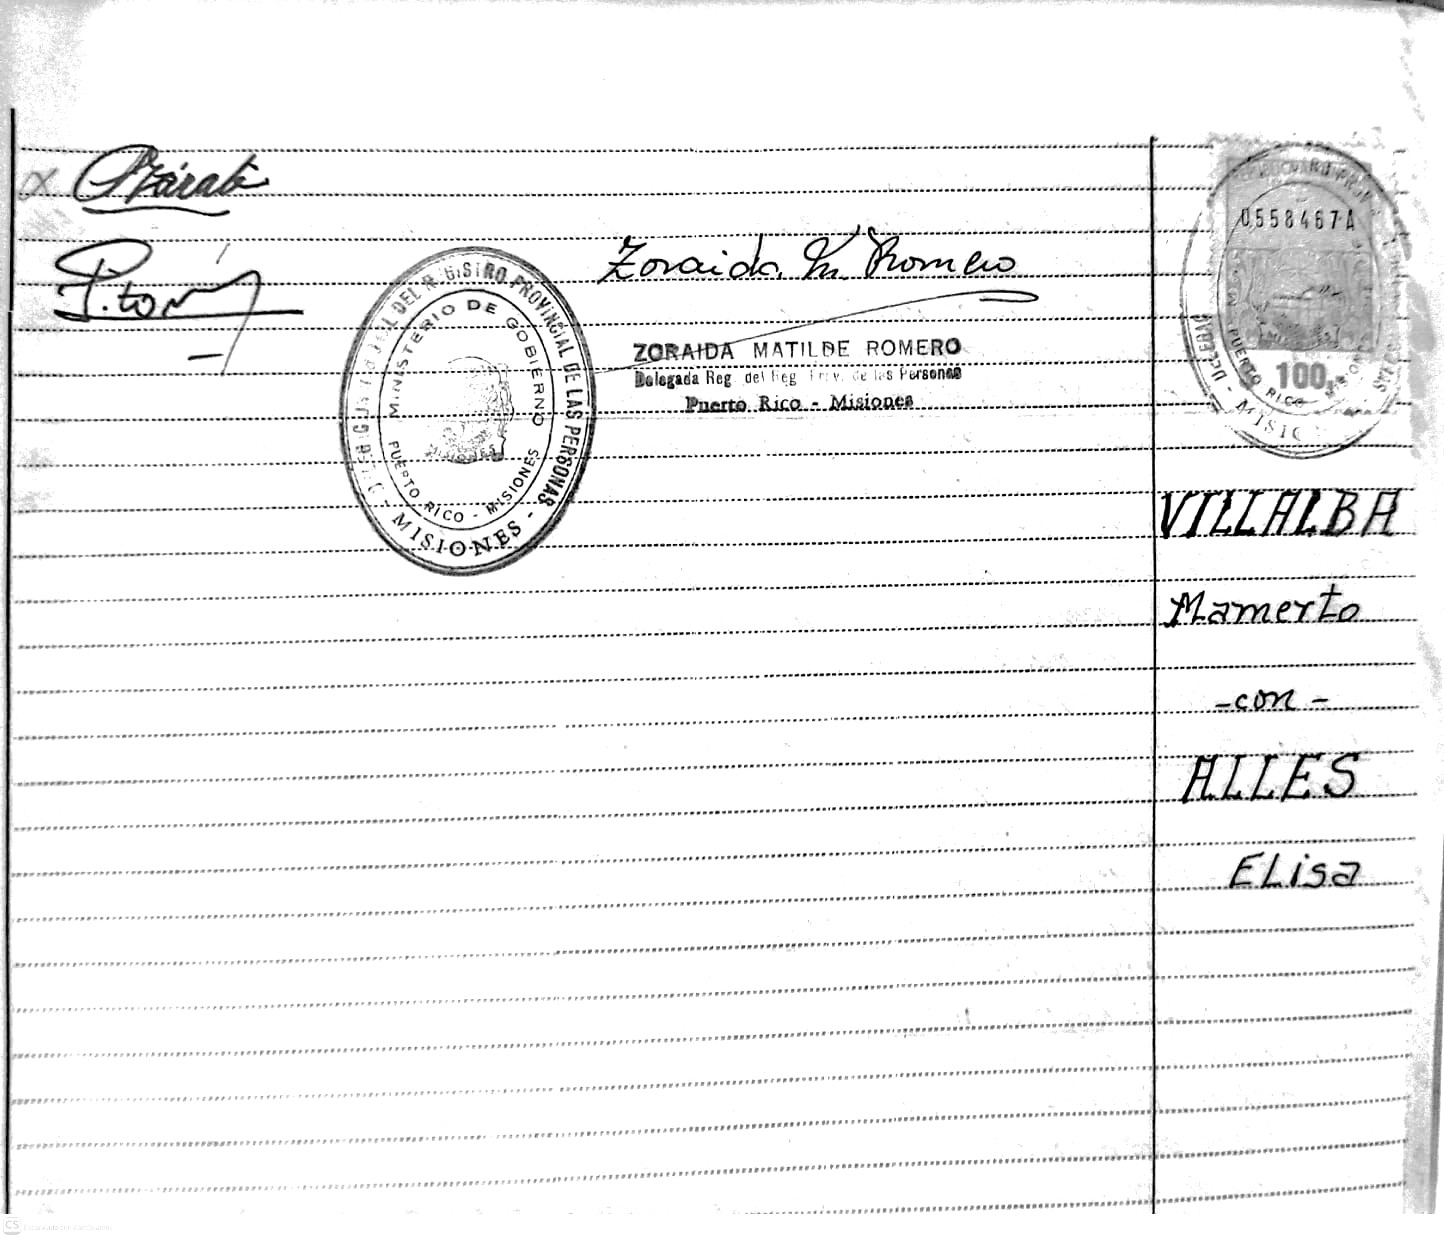 x Zárate
Zoraida M. Romero
ZORAIDA MATILDE ROMERO
Delegada Reg del Reg Prov. de las Personas
Puerto Rico - Misiones
DEL REGISTRO PROVINCIAL DE LAS PERSONAS
- MISIONES -
MINISTERIO DE GOBIERNO
PUERTO RICO - MISIONES
0558467A
100,-
PUERTO RICO
MISIO
VILLALBA
Mamerto
- con -
ALLES
ELisa
CS